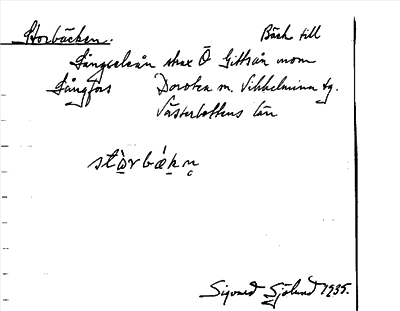 Storbäcken. Bäck till
Långseleån strax Ö Gittsån inom
Långfors Dorotea m. Vilhelmina tg.
Västerbottens län
stòrbǽkn̥
Sigvard Sjölund 1935.